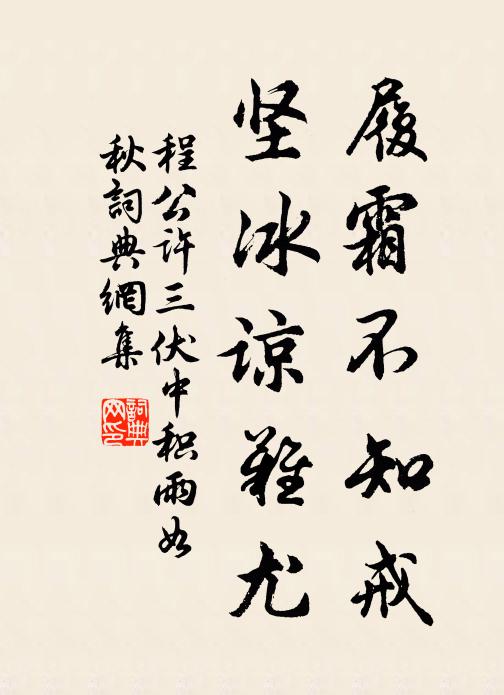 履霜不知戒
坚冰谅难尤
程公许三伏中积雨如
秋詞典網集
詞典
网印